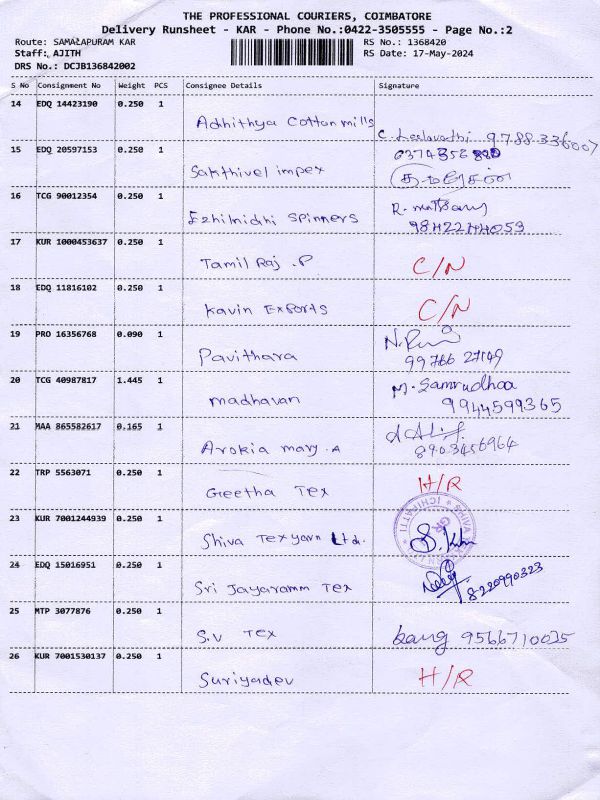 THE PROFESSIONAL COURIERS, COIMBATORE
Delivery Runsheet - KAR - Phone No.:0422-3505555 - Page No.:2
Route: SAMALAPURAM KAR RS No.: 1368420
Staff: AJITH RS Date: 17-May-2024
DRS No.: DCJB136842002
S No Consignment No Weight PCS Consignee Details Signature
14 EDQ 14423190 0.250 1 Adhithya Cotton mills
C. Leelavathi 9788336007
15 EDQ 20597153 0.250 1 Sakthivel impex
16 TCG 90012354 0.250 1 Ezhilnidhi Spinners
17 KUR 1000453637 0.250 1 Tamil Raj .P C/N
18 EDQ 11816102 0.250 1 Kavin Exports C/N
19 PRO 16356768 0.090 1 Pavithara
20 TCG 40987817 1.445 1 madhavan M. Samrudhaa
9944599365
21 MAA 865582617 0.165 1 Arokia mary .A
8903456964
22 TRP 5563071 0.250 1 Geetha Tex H/R
23 KUR 7001244939 0.250 1 Shiva Tex yarn Ltd.
24 EDQ 15016951 0.250 1 Sri Jayaramm Tex 8220990323
25 MTP 3077876 0.250 1 S.V Tex 9566710035
26 KUR 7001530137 0.250 1 Suriyadev H/R